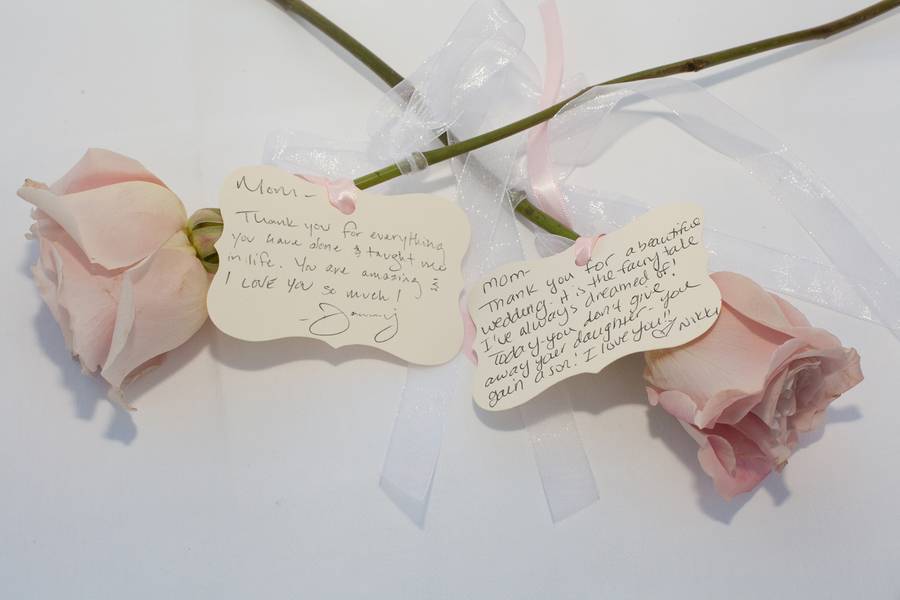 Mom-
Thank you for everything
you have done & taught me
in life. You are amazing &
I LOVE YOU so much!
mom-
Thank you for a beautiful
wedding. it is the fairytale
I've always dreamed of!
Today-you don't give
away your daughter- you
gain a son! I love you!!
♡ Nikki